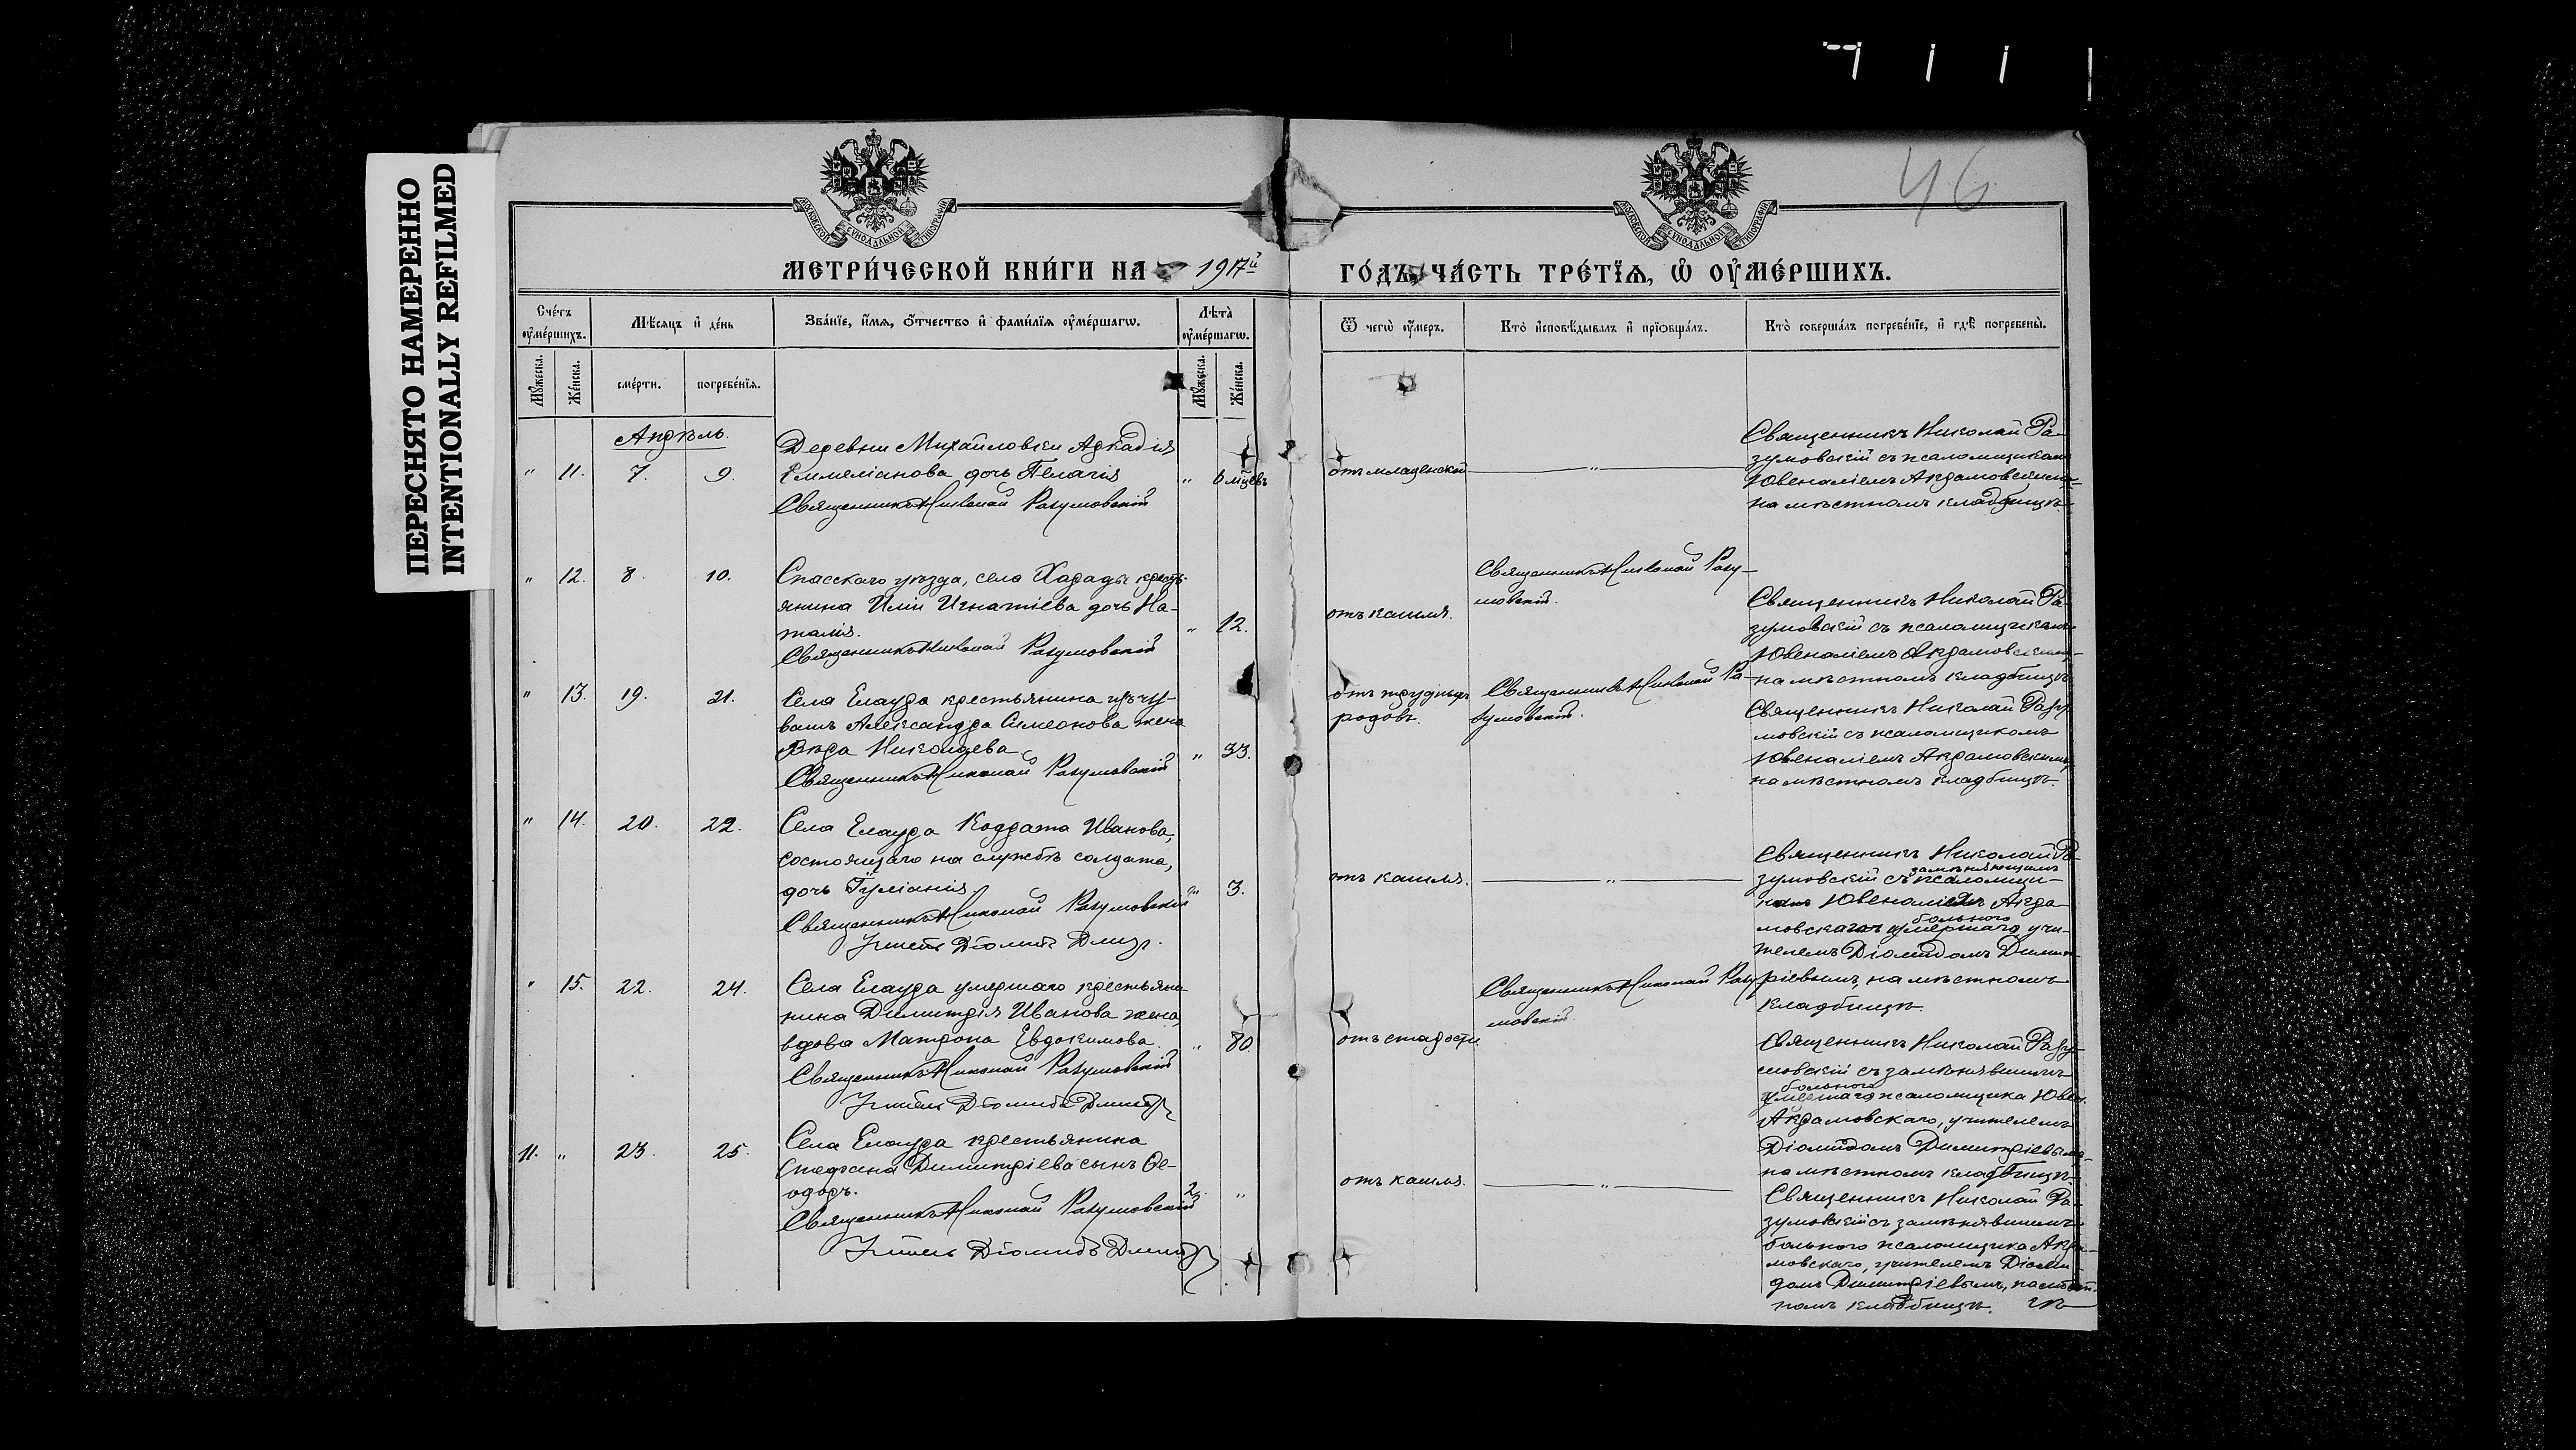 ПЕРЕСНЯТО НАМЕРЕННО
INTENTIONALLY REFILMED
46
МЕТРИ́ЧЕСКОЙ КНИ́ГИ НА 1917й
ГО́ДЪ, ЧА́СТЬ ТРЕ́ТЇѦ, Ѡ҆ ОУ҆МЕ́РШИХЪ.
Сче́тъ оу҆ме́ршихъ.
Мѣ́сѧцъ и҆ де́нь
Зва́нїе, и҆́мѧ, ѻ҆́тчество и҆ фами́лїѧ оу҆ме́ршагѡ.
Лѣ̀та̀ оу҆ме́ршагѡ.
Ѿ чегѡ̀ оу҆́меръ.
Кто̀ и҆сповѣ́дывалъ и҆ прїѡбща́лъ.
Кто̀ соверша́лъ погребе́нїе, и҆ гдѣ̀ погребены̀.
Мꙋ́жеска.
Же́нска.
сме́рти.
погребе́нїѧ.
Мꙋ́жеска.
Же́нска.
Апрѣль.
" 11. 7. 9.
Деревни Михайловки Аркадія
Емеліанова дочь Пелагія
Священникъ Николай Разумовскій
" 6 мцевъ
отъ младенской
"
Священникъ Николай Ра-
зумовскій съ псаломщикомъ
Ювеналіемъ Акрамовскимъ
на мѣстномъ кладбищѣ.
" 12. 8. 10.
Спасскаго уѣзда, села кресть-
янина Иліи Игнатіева дочь На-
талія.
Священникъ Николай Разумовскій
" 12.
отъ кашля.
Священникъ Николай Разу-
мовскій.
Священникъ Николай Ра-
зумовскій съ псаломщикомъ
Ювеналіемъ Акрамовскимъ
на мѣстномъ кладбищѣ
" 13. 19. 21.
Села Елаура крестьянина изъ чу-
вашъ Александра Симеонова жена
Вѣра Николаева
Священникъ Николай Разумовскій
" 33.
отъ трудныхъ
родовъ.
Священникъ Николай Ра-
зумовскій.
Священникъ Николай Разу-
мовскій съ псаломщикомъ
Ювеналіемъ Акрамовскимъ
на мѣстномъ кладбищѣ.
" 14. 20. 22.
Села Елаура Кодрата Иванова,
состоящаго на службѣ солдата,
дочь Іуліанія.
Священникъ Николай Разумовскій
" 3.
отъ кашля.
"
Священникъ Николай Ра-
замѣняющимъ
зумовскій съ псаломщи-
Ювеналія Акра-
больного
мовскаго учи-
телемъ Діомидомъ Димит-
ріевымъ, на мѣстномъ
кладбищѣ.
" 15. 22. 24.
Села Елаура умершаго крестья-
нина Димитрія Иванова жена,
вдова Матрона Евдокимова.
Священникъ Николай Разумовскій
Учитель Діомидъ
" 80.
отъ старости.
Священникъ Николай Разу-
мовскій.
Священникъ Николай Разу-
мовскій съ замѣнявшимъ
больного
псаломщика Ювен.
Акрамовскаго, учителемъ
Діомидомъ Димитріевымъ
на мѣстномъ кладбищѣ
11. " 23. 25.
Села Елаура крестьянина
Стефана Димитріева сынъ Ѳе-
одоръ.
Священникъ Николай Разумовскій
Учитель Діомидъ
"
отъ кашля.
"
Священникъ Николай Ра-
зумовскій съ замѣнявшимъ
больного псаломщика Акра-
мовскаго, учителемъ Діоми-
домъ Димитріевымъ, на мѣст-
номъ кладбищѣ.